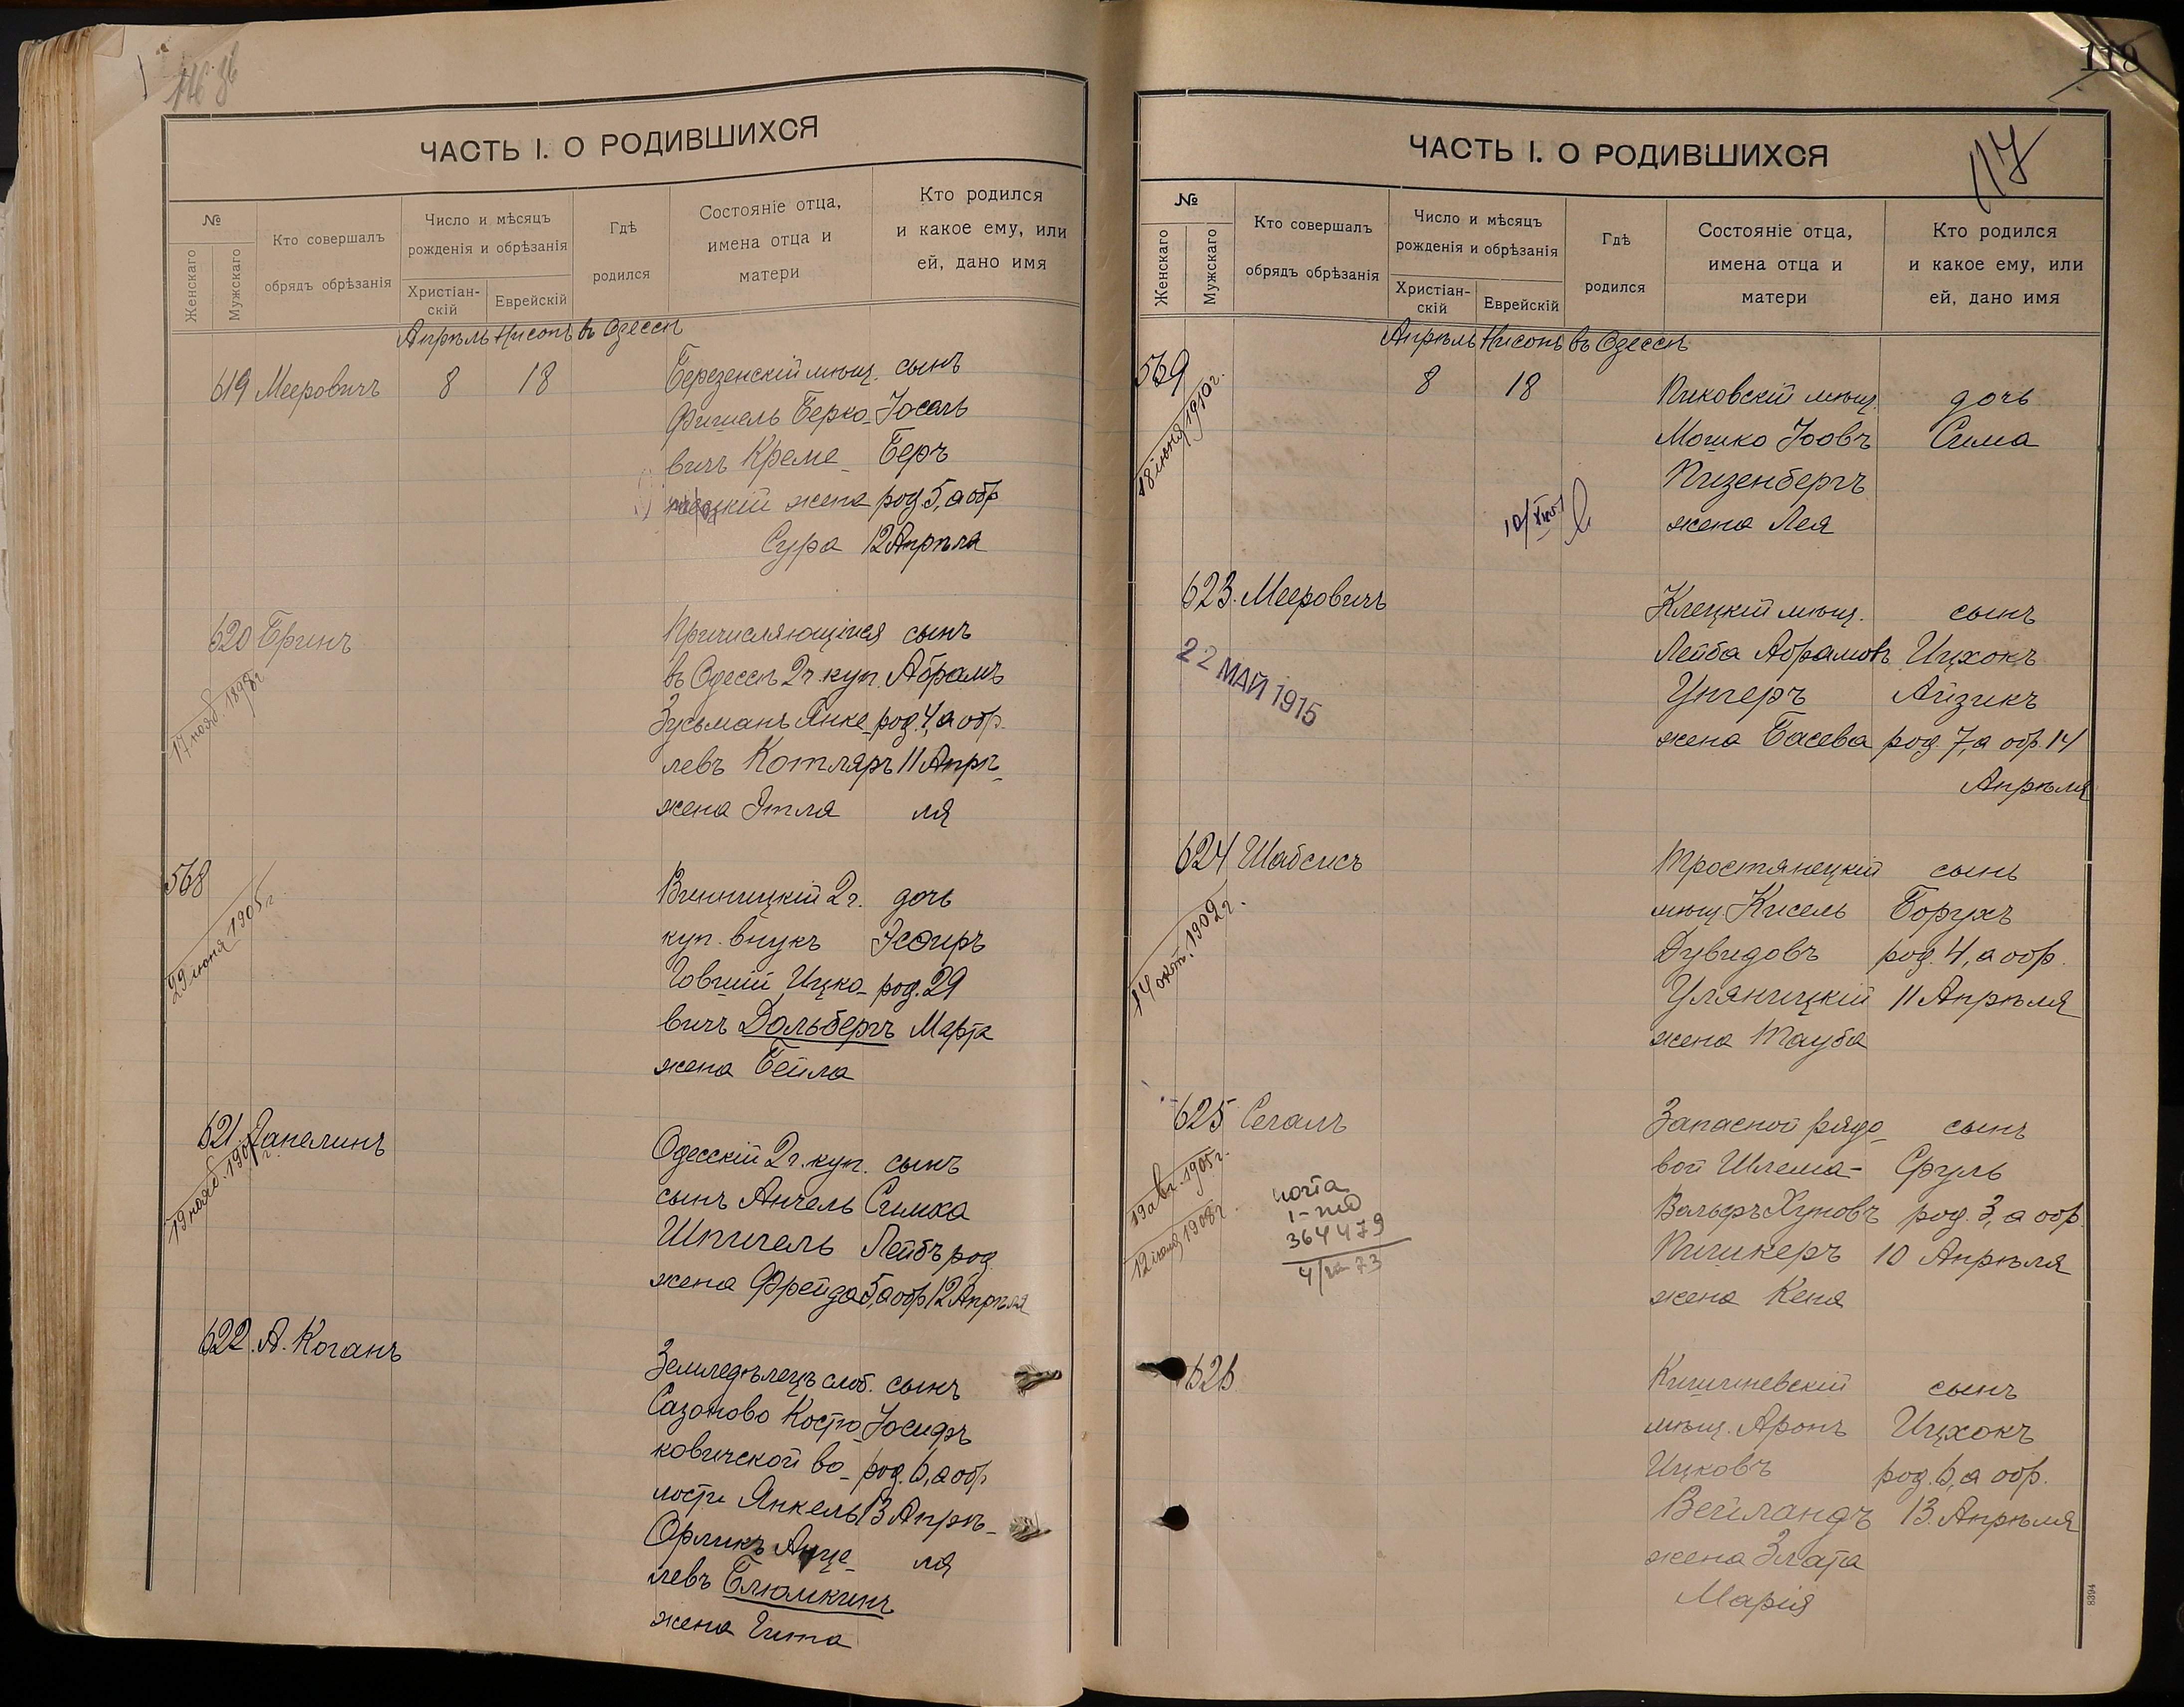 ЧАСТЬ I. О РОДИВШИХСЯ
№
Женскаго
Мужскаго
Кто совершалъ
обрядъ обрѣзанія
Число и мѣсяцъ
рожденія и обрѣзанія
Христіан-
скій
Еврейскій
Гдѣ
родился
Состояніе отца,
имена отца и
матери
Кто родился
и какое ему, или
ей, дано имя
Апрѣль Нисонъ въ Одессѣ
619 Мееровичъ 8 18 Березенскій мѣщ. сынъ
Фишель Берко- Іосель
вичъ Креме- Беръ
нецкій жена род. 5, а обр
Сура 12 Апрѣля
620 Бринъ Причисляющійся сынъ
17 нояб. 1898 г.
въ Одессѣ 2 г. куп. Абрамъ
Зусьманъ Янке- род. 4, а обр.
левъ Котляръ 11 Апрѣ-
жена Этля ля
568 Винницкій 2 г. дочь
29 іюня 1905 г.
куп. внукъ Эсѳиръ
Говшій Ицко- род. 29
вичъ Дольбергъ Марта
жена Бейла
621 Одесскій 2 г. куп. сынъ
19 нояб.
сынъ Анчель Симха
Шпигель Лейбъ род.
жена Фрейда 5, а обр 12 Апрѣля
622. А. Коганъ Земледѣлецъ слоб. сынъ
Сазоново Костю- Іосифъ
ковичской во- род. 6, а обр
лости Янкель 13 Апрѣ-
Орликъ Анце- ля
левъ Блюмкинъ
жена Гита
118
117
ЧАСТЬ I. О РОДИВШИХСЯ
№
Женскаго
Мужскаго
Кто совершалъ
обрядъ обрѣзанія
Число и мѣсяцъ
рожденія и обрѣзанія
Христіан-
скій
Еврейскій
Гдѣ
родился
Состояніе отца,
имена отца и
матери
Кто родился
и какое ему, или
ей, дано имя
Апрѣль Нисонъ въ Одессѣ
569 8 18 Пиковскій мѣщ. дочь
18 іюня 1910 г.
Мошко Іовъ Сима
Пизенбергъ
жена Лея
623. Мееровичъ Клецкій мѣщ. сынъ
22 МАЙ 1915
Лейба Абрамовъ Ицхокъ
Унгеръ Айзикъ
жена Басева род. 7, а обр. 14
Апрѣля
624 Шабсисъ Тростянецкій сынъ
14 окт. 1909 г.
мѣщ. Кисель Борухъ
Дувидовъ род. 4, а обр.
Уляницкій 11 Апрѣля
жена Тауба
625 Сегалъ Запасной рядо- сынъ
19 авг. 1905 г.
12 іюня 1908 г.
364479
вой Шлема- Сруль
Вольфъ Хуновъ род. 3, а обр.
Пишкеръ 10 Апрѣля
жена Кеня
626 Кишиневскій сынъ
мѣщ. Аронъ Ицхокъ
Ицковъ род. 6, а обр.
Вейландъ 13. Апрѣля
жена Злата
Марія
8394